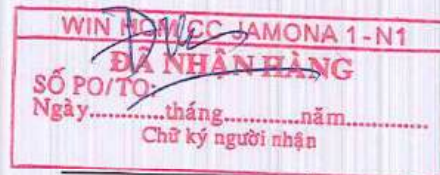 WIN HCM CC JAMONA 1 - N1
ĐÃ NHẬN HÀNG
SỐ PO/TO:
Ngày............tháng............năm............
Chữ ký người nhận